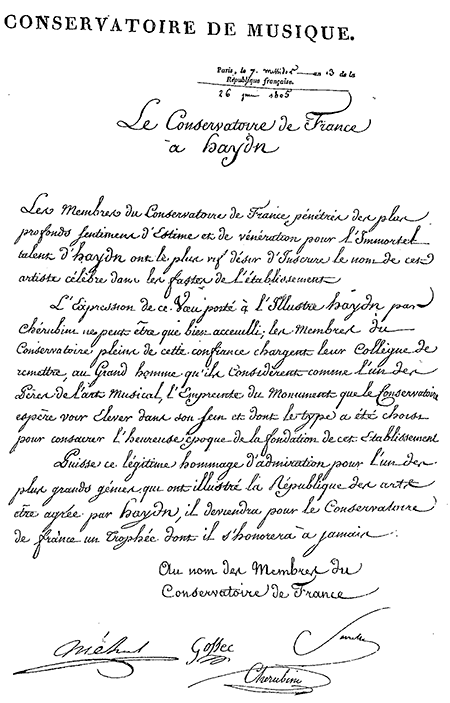 CONSERVATOIRE DE MUSIQUE.
Paris, le 7. messidor an 13 de la
République française.
26 juin 1805
Le Conservatoire de France
à haydn
Les Membres du Conservatoire de France pénétrés des plus
profonds sentimens d'Estime et de vénération pour l'Immortel
talent d'haydn ont le plus vif désir d'Inscrire le nom de cet
artiste célèbre dans les fastes de l'établissement.
L'Expression de ce Vœu porté à l'Illustre haydn par
Chérubini ne peut être que bien accueilli; les Membres du
Conservatoire pleins de cette confiance chargent leur Collègue de
remettre, au Grand homme qu'ils Considèrent comme l'un des
Pères de l'art Musical, l'Empreinte du Monument que le Conservatoire
espère voir Elever dans son sein et dont le type a été choisi
pour consacrer l'heureuse époque de la fondation de cet Etablissement
Puisse ce légitime hommage d'admiration pour l'un des
plus grands génies qui ont illustré la République des arts
être agréé par haydn, il deviendra pour le Conservatoire
de france un Trophée dont il s'honorera à jamais.
Au nom des Membres du
Conservatoire de France
Méhul Gossec
Cherubini